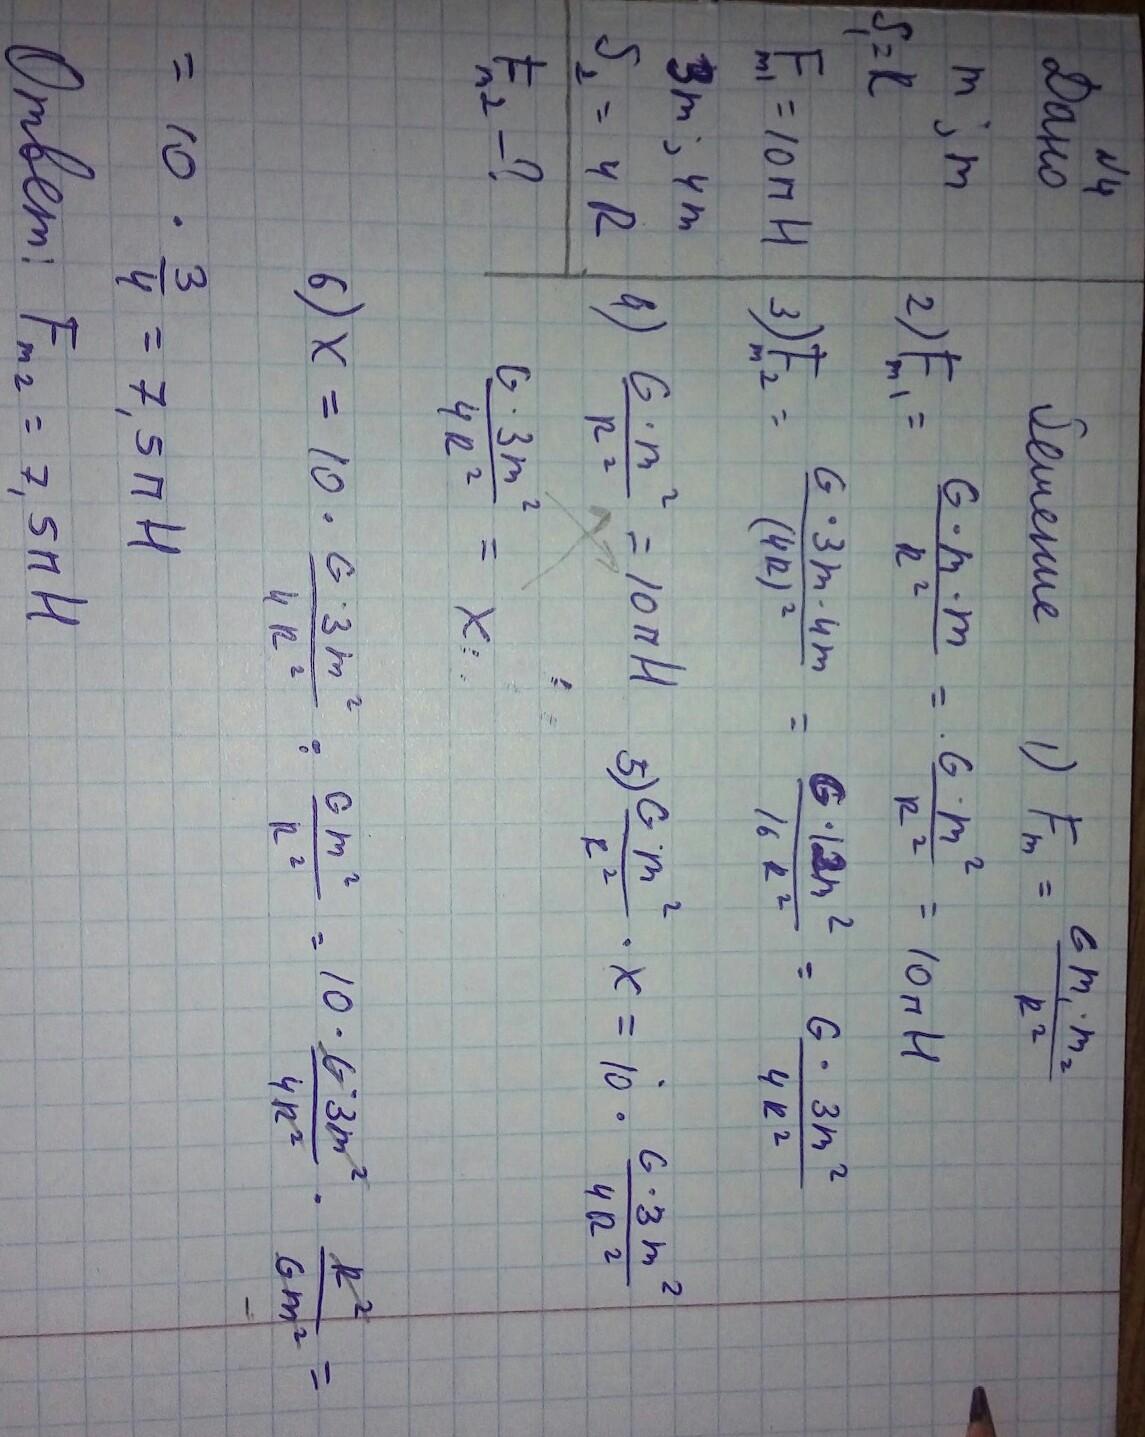 N4
Дано
m; m
S₁=R
Fm₁=10пН
3m; 4m
S₂=4R
Fm₂-?
Решение 1) Fm = Gm₁·m₂/R²
2) Fm₁ = G·m·m/R² = G·m²/R² = 10пН
3) Fm₂ = G·3m·4m/(4R)² = G·12m²/16R² = G·3m²/4R²
4) G·m²/R² = 10пН
G·3m²/4R² = X
5) G·m²/R² · X = 10 · G·3m²/4R²
6) X = 10 · G·3m²/4R² : Gm²/R² = 10 · G·3m²/4R² · R²/Gm² =
= 10 · 3/4 = 7,5пН
Ответ: Fm₂ = 7,5пН